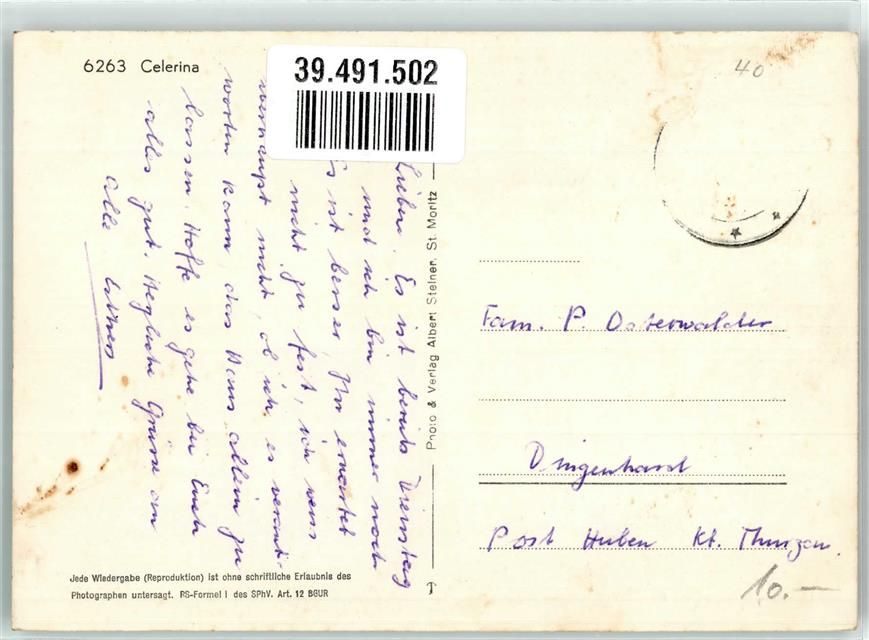 6263 Celerina
39.491.502
40
Lieben. Es ist bereits Dienstag
und ich bin immer noch
Es ist besser, Ihr erwartet
nicht zu fest, ich weiss
überhaupt nicht, ob ich es verant-
worten kann, das Haus allein zu
lassen. Hoffe es gehe bei Euch
alles gut. Herzliche Grüsse an
alle
Photo & Verlag Albert Steiner, St. Moritz
Fam. P. Osterwalder
Dingenhart
Post Huben Kt. Thurgau.
10.—
Jede Wiedergabe (Reproduktion) ist ohne schriftliche Erlaubnis des
Photographen untersagt. RS-Formel I des SPhV. Art. 12 BGUR